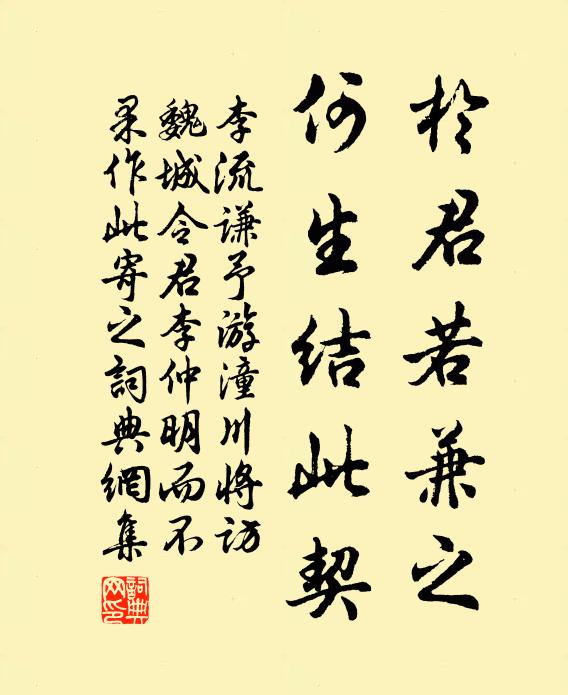 於君若兼之
何生结此契
李流谦予游潼川将访
魏城令君李仲明而不
果作此寄之詞典網集
詞典網印